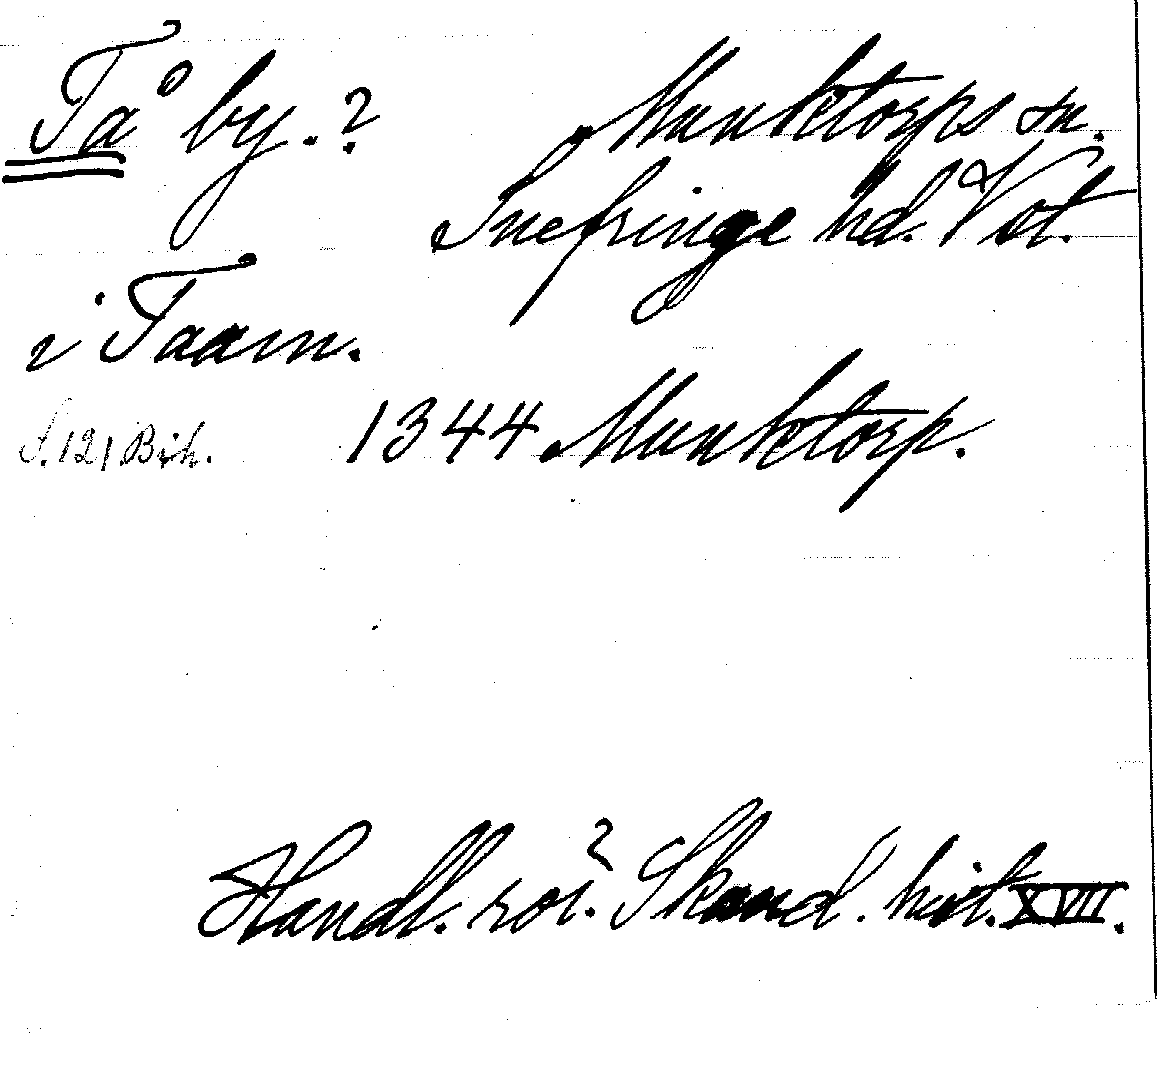 Tå by.? Munktorps sn.
Snefringe hd. Vstl.
i Taam.
S. 121 Bih. 1344 Munktorp.
Handl. rör. Skand. hist. XVII.